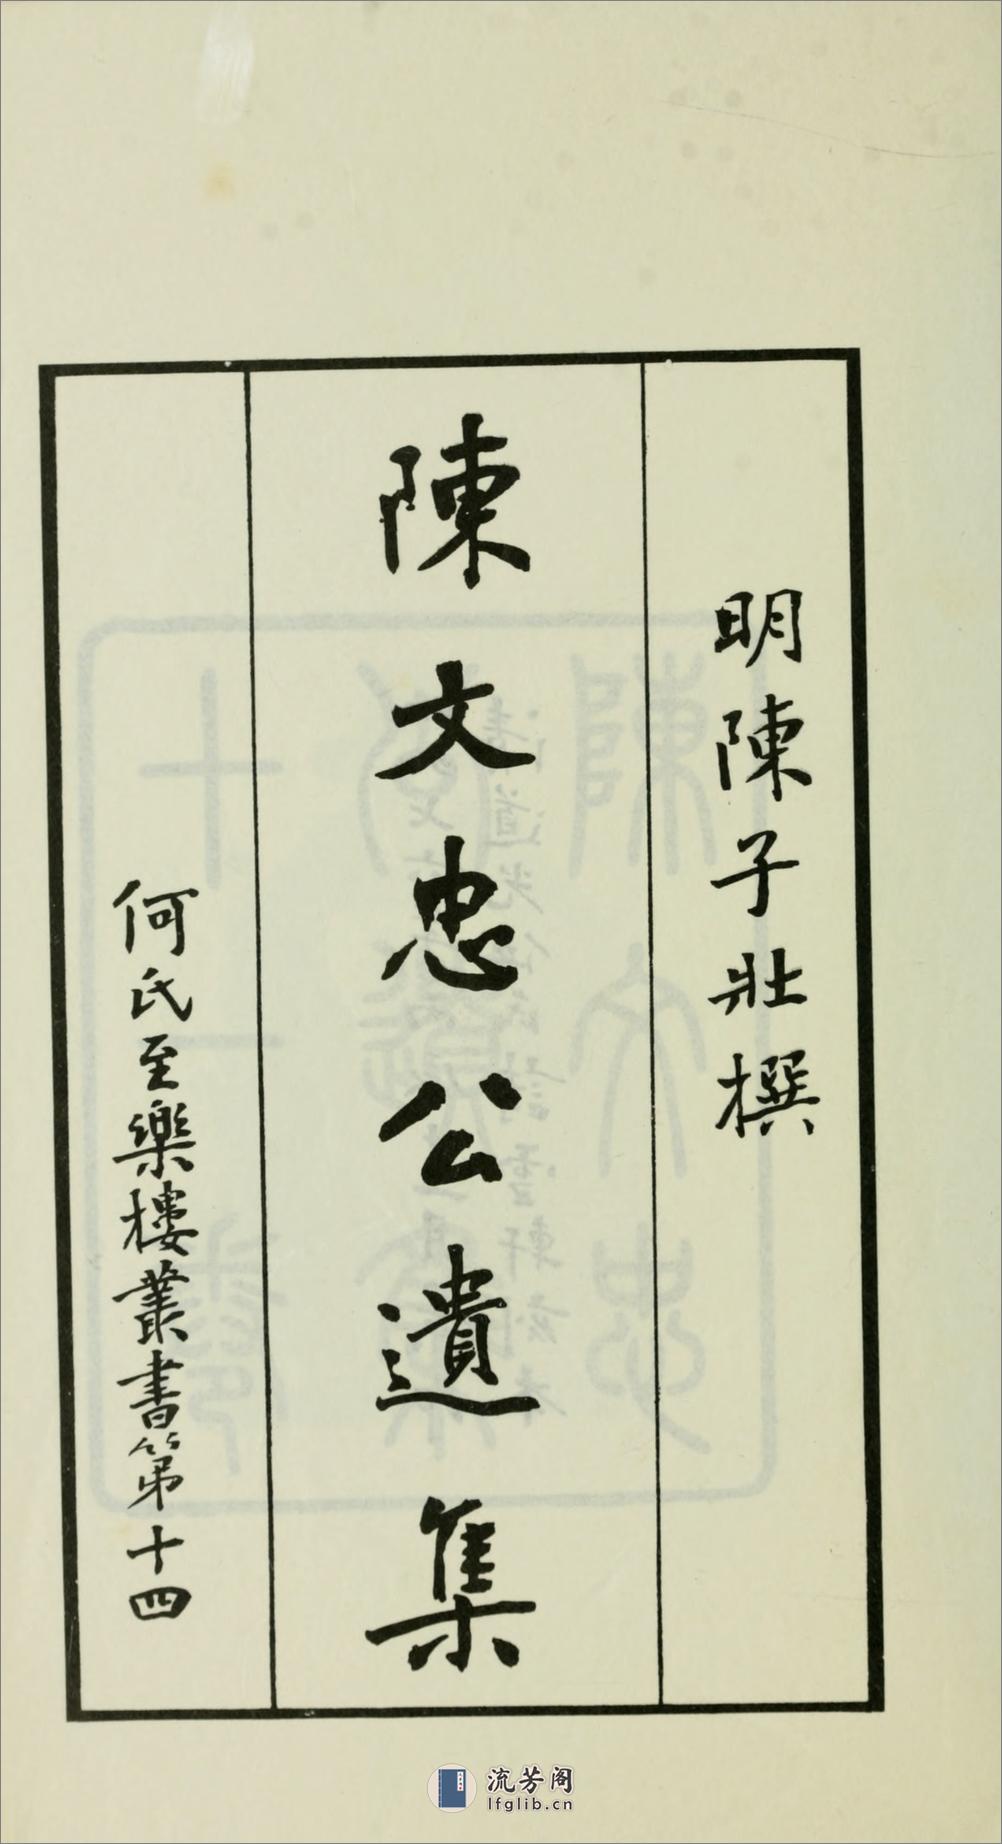 明陳子壯撰
陳文忠公遺集
何氏至樂樓叢書第十四
流芳阁
lfglib.cn